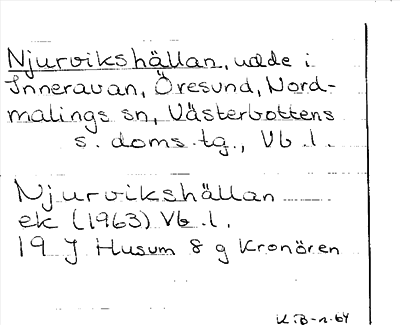 Njurvikshällan, udde i
Inneravan, Öresund, Nord-
malings sn, Västerbottens
s. doms.tg., Vb.l.
Njurvikshällan
ek (1963) Vb.l.
19 J Husum 8 g Kronören
K:B-n-64